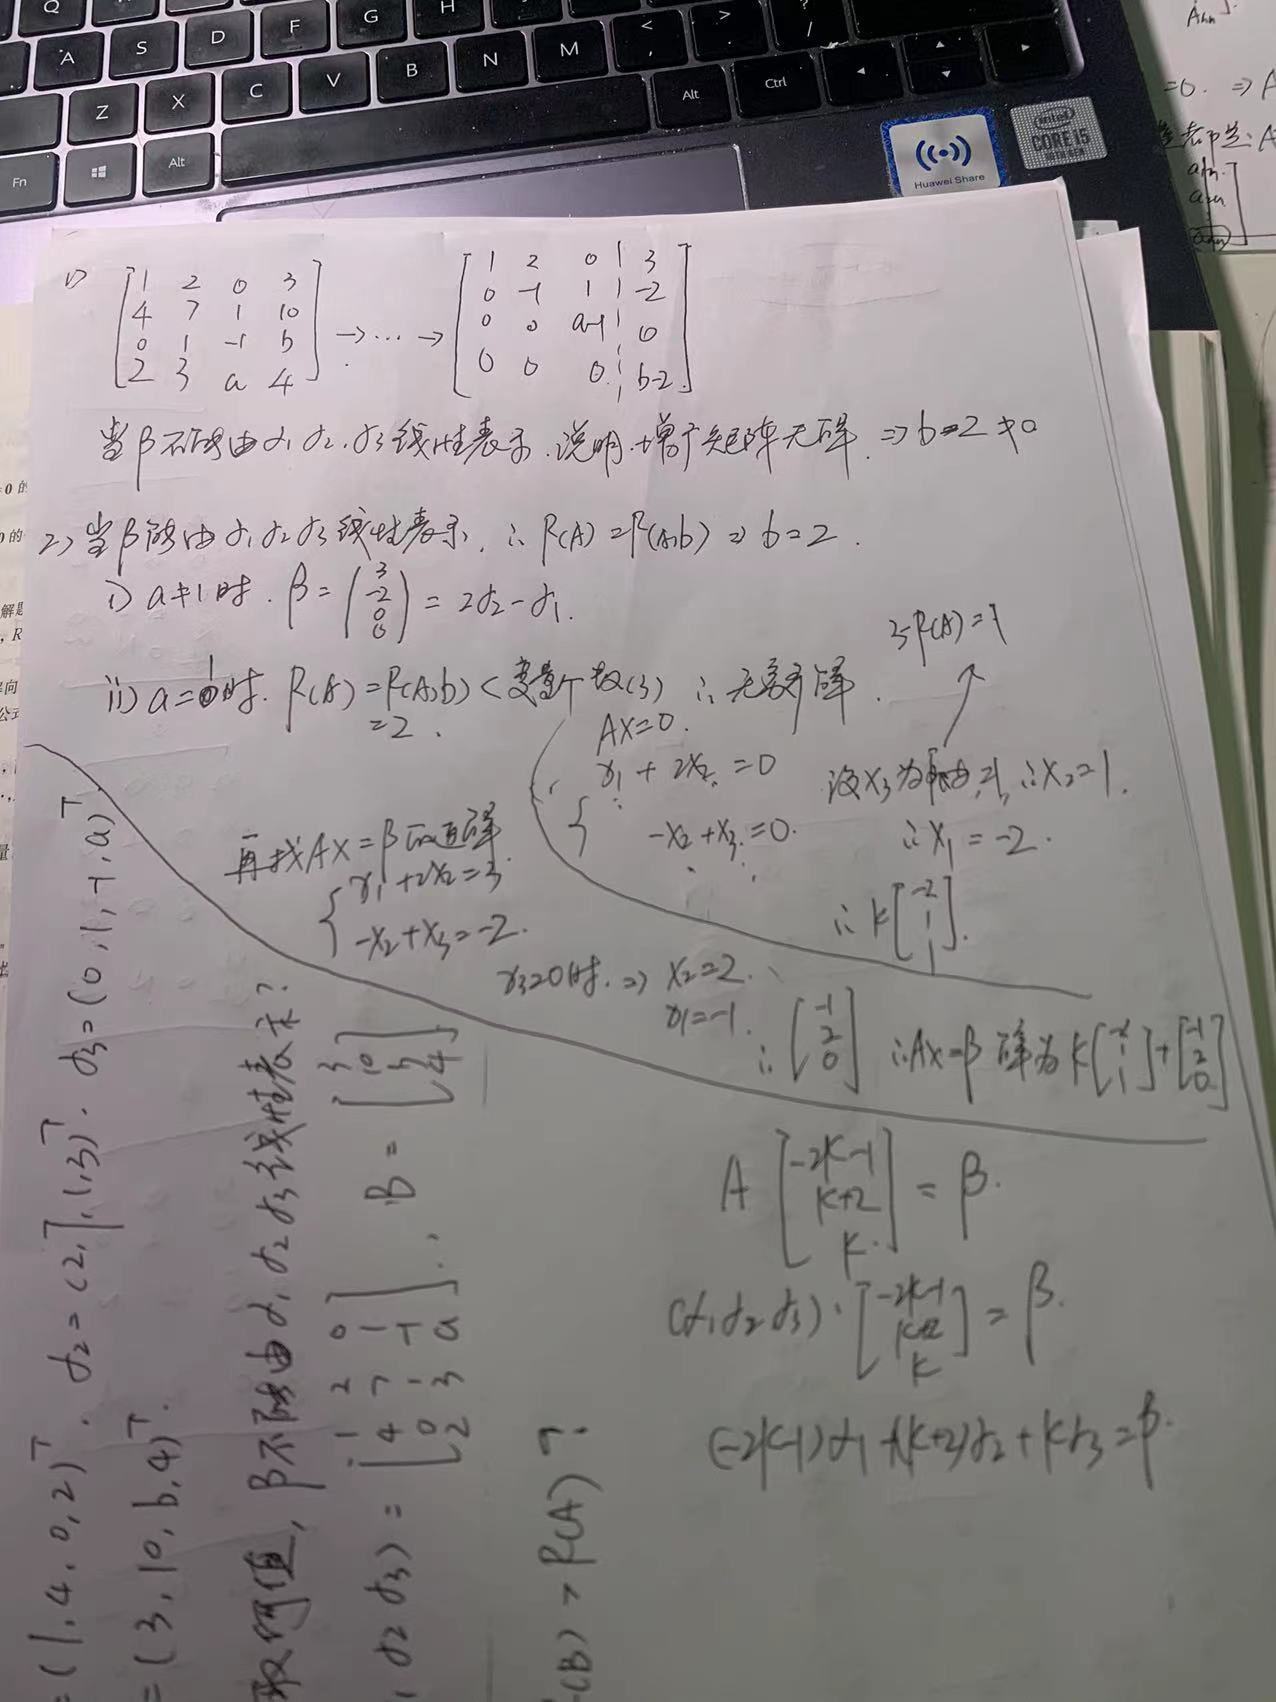 Q
A S D F G H J K L
Z X C V B N M < , > . ? /
Fn Alt Alt Ctrl
Huawei Share
intel CORE i5
=0. ⇒ A
1) [1 2 0 3; 4 7 1 10; 0 1 -1 b; 2 3 a 4] → ··· → [1 2 0 | 3; 0 -1 1 | -2; 0 0 a-1 | 0; 0 0 0 | b-2]
当β不能由α₁ α₂, α₃线性表示, 说明增广矩阵无解. ⇒ b-2≠0
2) 当β能由α₁ α₂ α₃线性表示, ∴ R(A) = R(A,b) ⇒ b=2.
i) a≠1时. β = (3; -2; 0; 0) = 2α₂-α₁.
ii) a=1时. R(A) = R(A,b) < 变量个数(3) ∴ 无穷多解.
=2.
3-R(A)=1
AX=0.
{ x₁ + 2x₂ = 0
-x₂ + x₃ = 0.
设x₃为自由,=1, ∴x₂=1.
∴x₁ = -2.
∴ k[-2; 1; 1].
再找AX=β的通解
{ x₁+2x₂=3
-x₂+x₃=-2.
x₃=0时. ⇒ x₂=2.
x₁=-1.
∴ [-1; 2; 0] ∴AX=β 解为 k[-2; 1; 1]+[-1; 2; 0]
A [-2k-1; k+2; k] = β.
(α₁ α₂ α₃)·[-2k-1; k+2; k] = β.
(-2k-1)α₁+(k+2)α₂+kα₃=β.
=(1,4,0,2)ᵀ. α₂=(2,7,1,3)ᵀ. α₃=(0,1,-1,a)ᵀ
=(3,10,b,4)ᵀ.
取何值, β不能由α₁ α₂ α₃线性表示?
α₂ α₃) = [1 2 0; 4 7 1; 0 1 -1; 2 3 a]. B = [3; 10; b; 4]
(B) > R(A)?